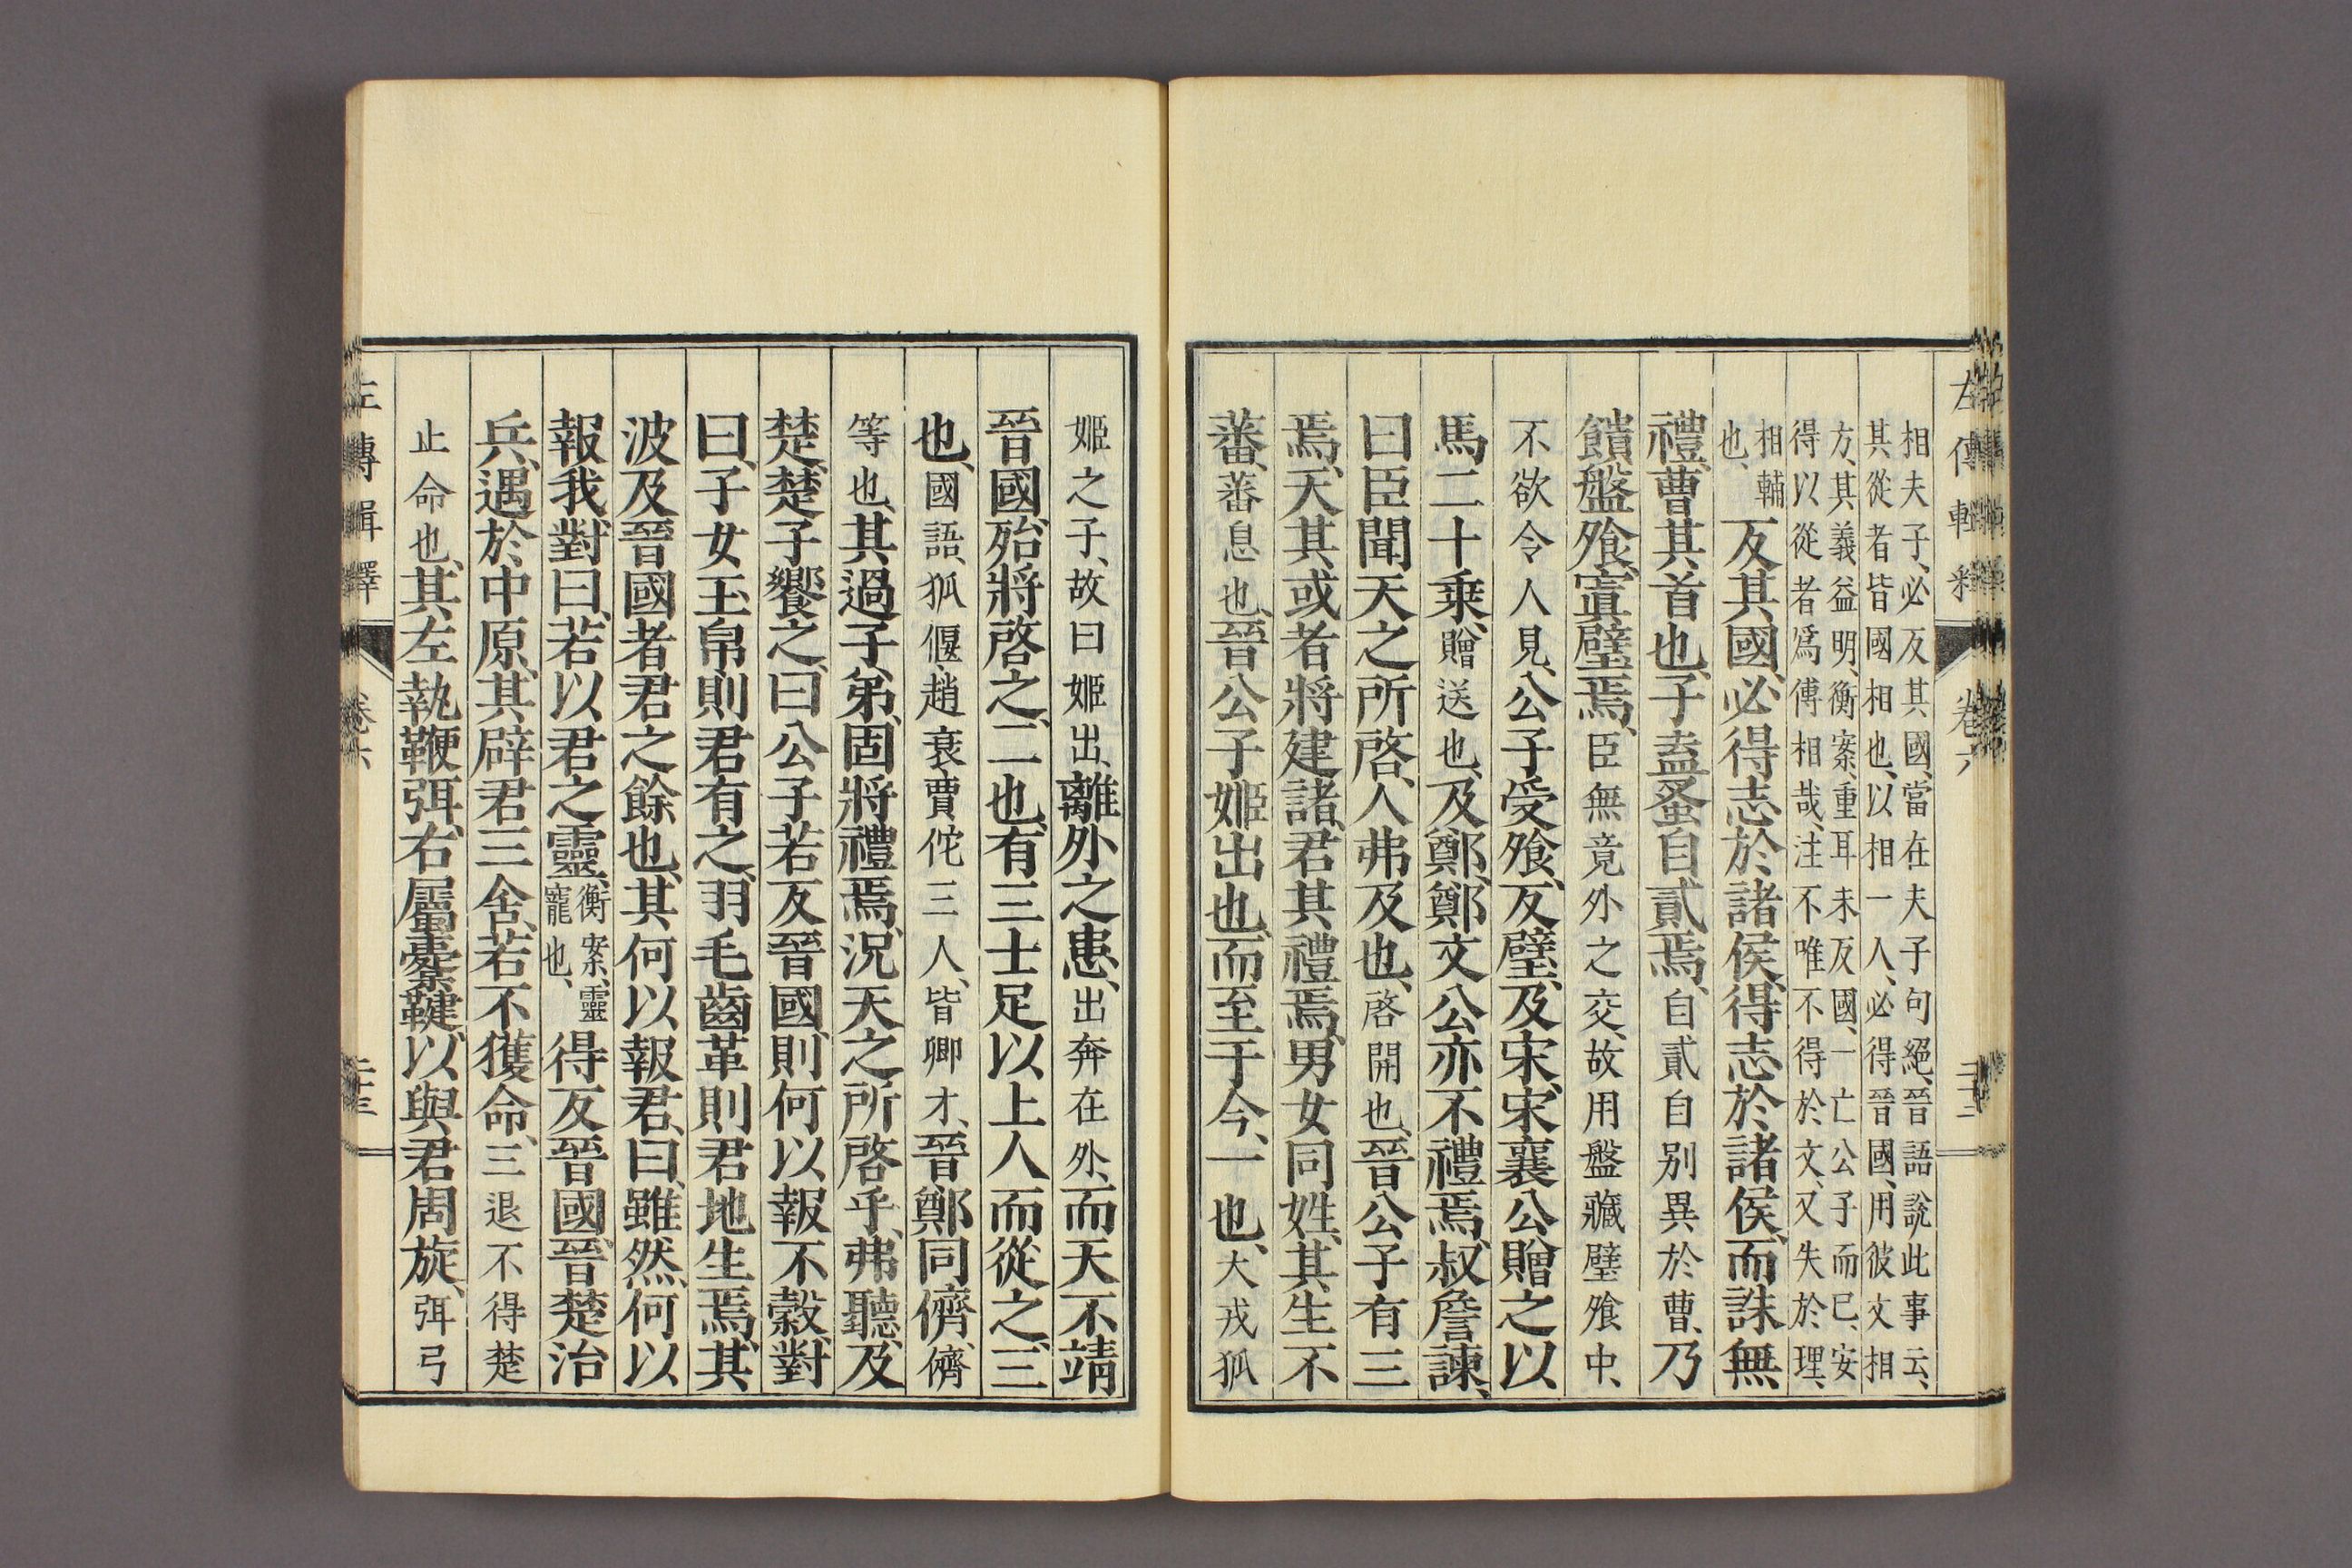 相夫子、必反其國、當在夫子句絕、晉語說此事云、
其從者皆國相也、以相一人、必得晉國、用彼文相
方、其義益明、衡案、重耳未反國、一亡公子而已、安
得以從者爲傅相哉、注不唯不得於文、又失於理、
相輔
也、
反其國、必得志於諸侯、得志於諸侯、而誅無
禮、曹其首也、子盍蚤自貳焉、自貳自別異於曹、乃
饋盤飧、寘璧焉、臣無竟外之交、故用盤藏璧飧中、
不欲令人見、公子受飧、反璧、及宋、宋襄公贈之以
馬二十乘、贈送也、及鄭、鄭文公亦不禮焉、叔詹諫、
曰臣聞天之所啓、人弗及也、啓開也、晉公子有三
焉、天其或者將建諸、君其禮焉、男女同姓、其生不
蕃、蕃息也、晉公子姬出也、而至于今、一也、大戎狐
左傳輯釋 卷六
姬之子、故曰姬出、離外之患、出奔在外、而天不靖
晉國、殆將啓之、二也、有三士足以上人而從之、三
也、國語、狐偃、趙衰、賈佗三人、皆卿才、晉鄭同儕、儕
等也、其過子弟、固將禮焉、況天之所啓乎、弗聽、及
楚、楚子饗之、曰公子若反晉國、則何以報不穀、對
曰、子女玉帛、則君有之、羽毛齒革則君地生焉、其
波及晉國者君之餘也、其何以報君、曰、雖然、何以
報我、對曰、若以君之靈、
衡案、靈
寵也、
得反晉國、晉楚治
兵、遇於中原、其辟君三舍、若不獲命、三退不得楚
止命也、其左執鞭弭、右屬櫜鞬、以與君周旋、弭弓
左傳輯釋 卷六 二十三